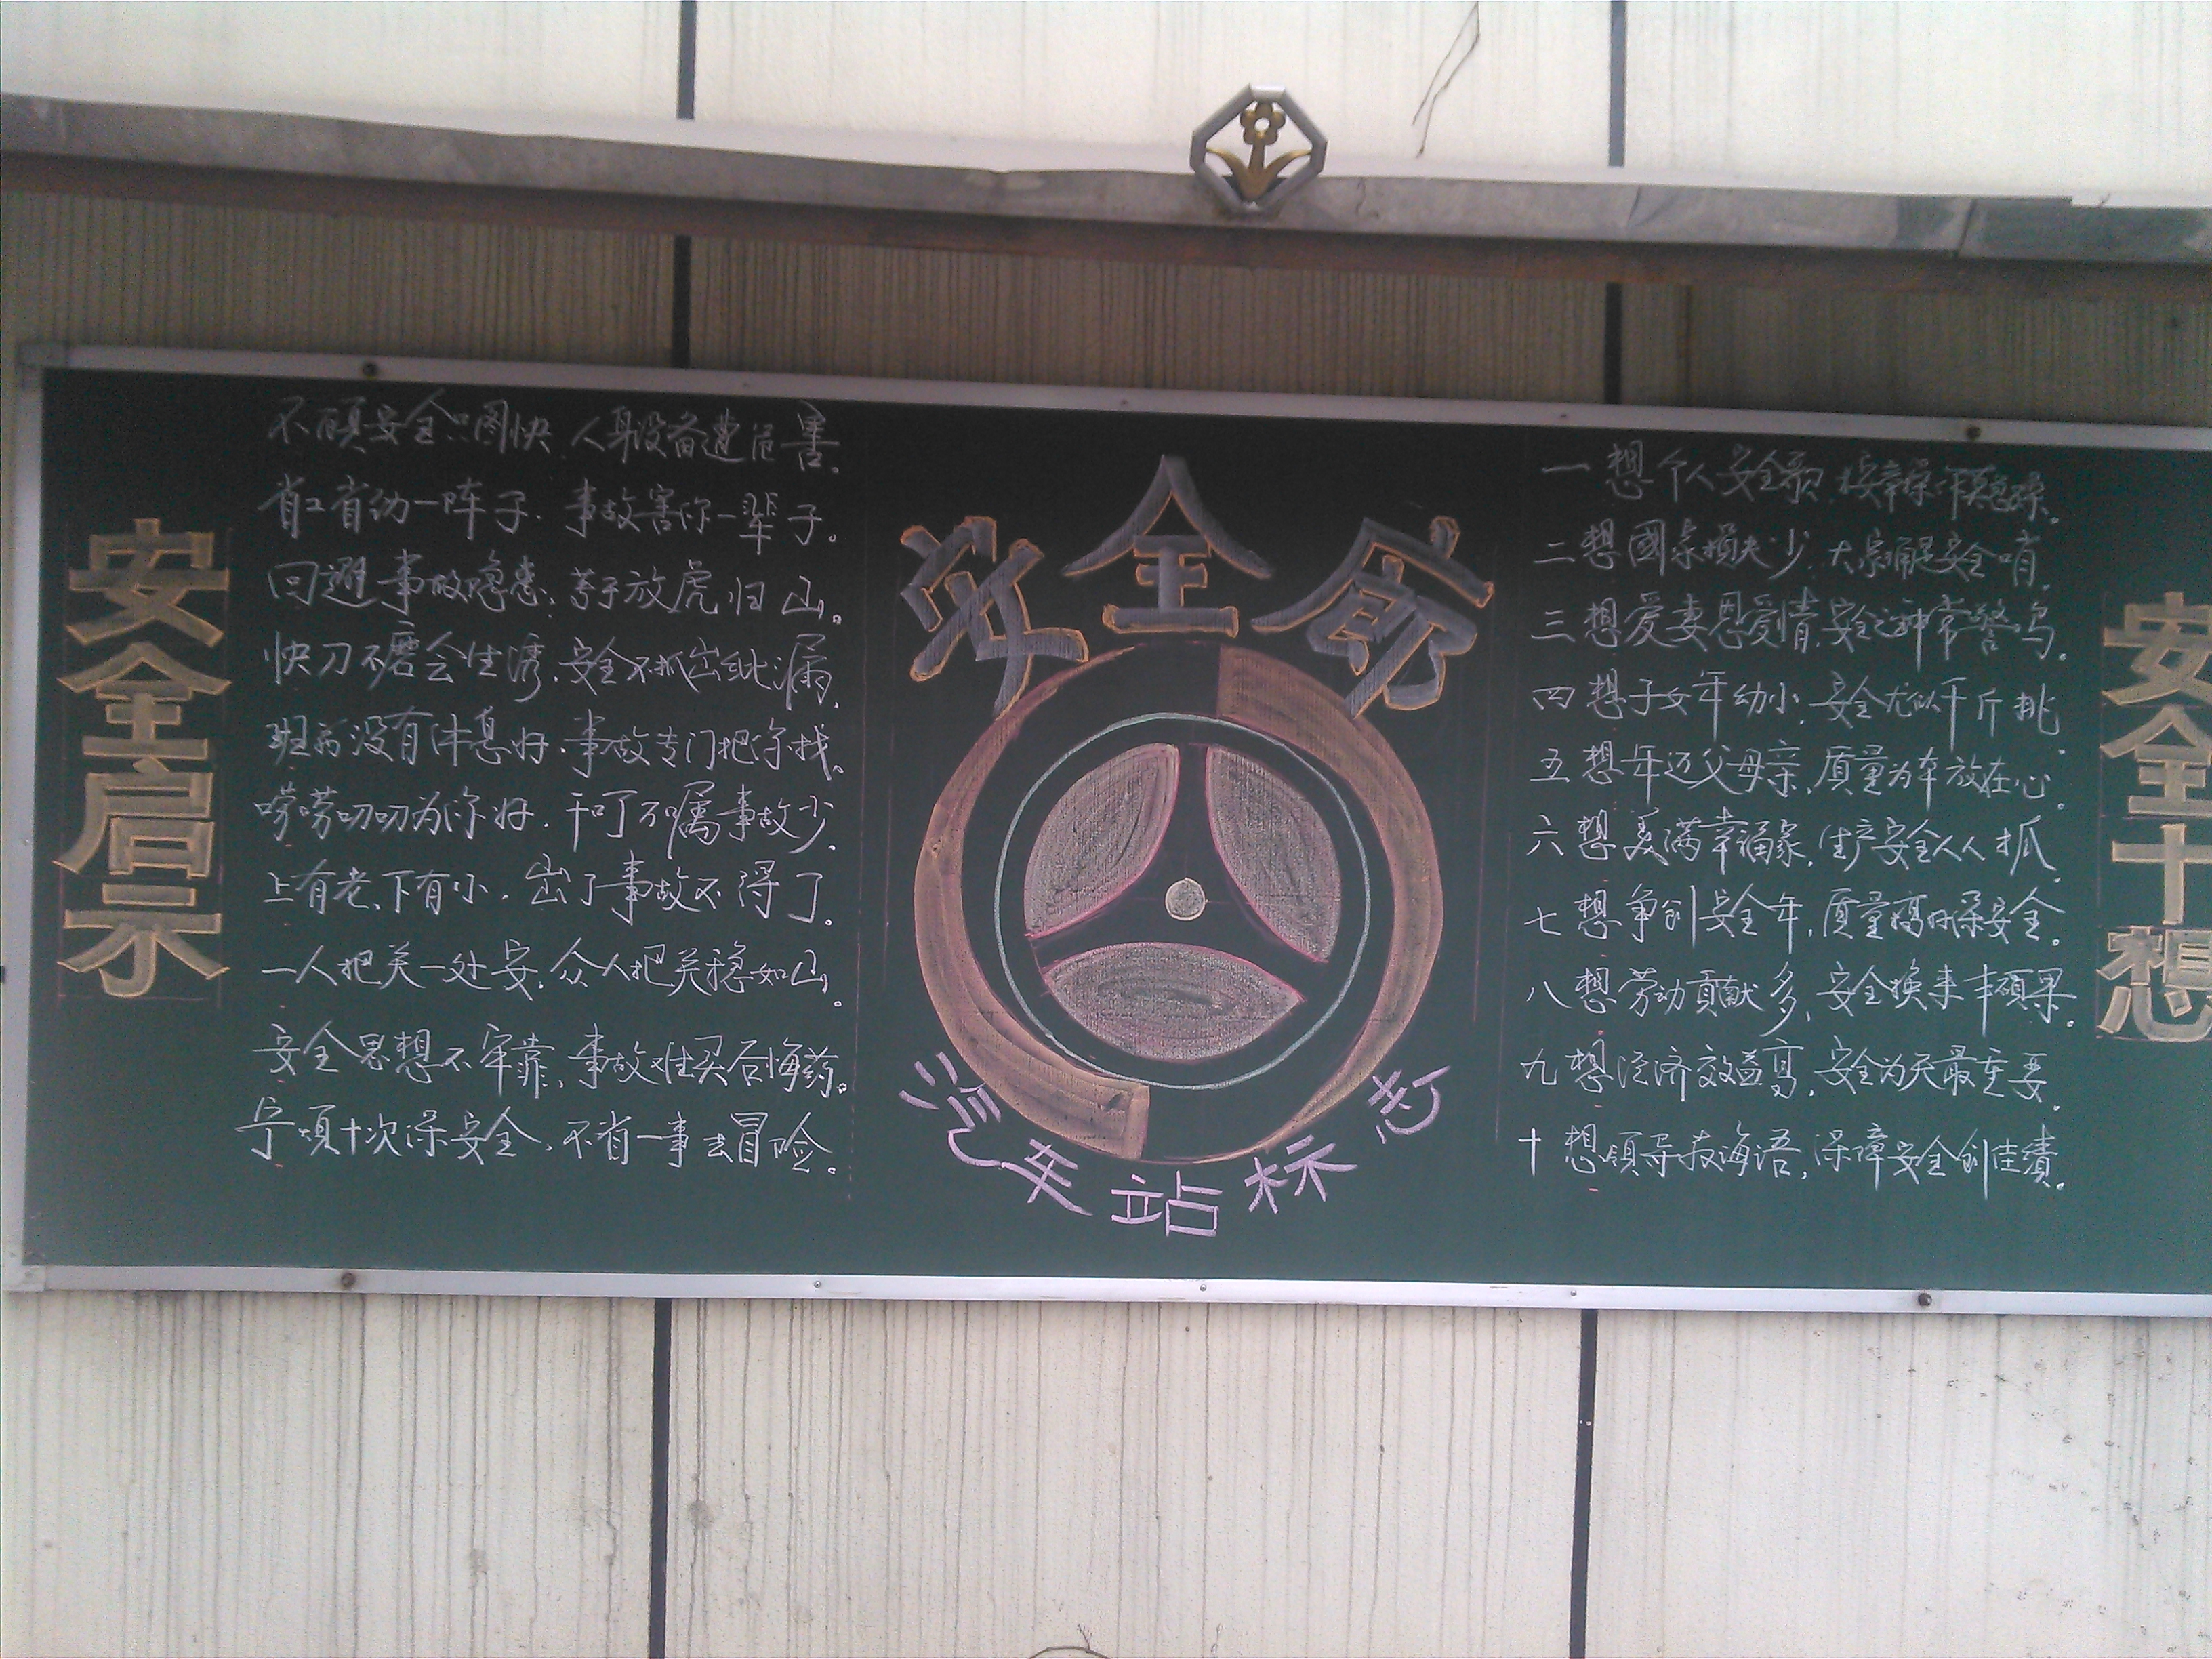 安全启示
不顾安全只图快,人身设备遭危害。
省工省劲一阵子,事故害你一辈子。
回避事故隐患,等于放虎归山。
快刀不磨会生锈,安全不抓出纰漏。
班前没有休息好,事故专门把你找。
唠唠叨叨为你好,千叮万嘱事故少。
上有老、下有小,出了事故不得了。
一人把关一处安,众人把关稳如山。
安全思想不牢靠,事故难买后悔药。
宁烦十次保安全,不省一事去冒险。
安全
汽车站标志
一想个人安全
二想國家损失少,大家
三想爱妻恩爱情,安全常警鸣。
四想子女年幼小,安全尤似千斤挑。
五想年迈父母亲,质量为本放在心。
六想美满幸福家,生产安全人人抓。
七想争创安全年,质量保安全。
八想劳动貢献多,安全换来丰碩果。
九想经济效益高,安全为天最重要。
十想領导教诲语,保障安全创佳績。
安全十想